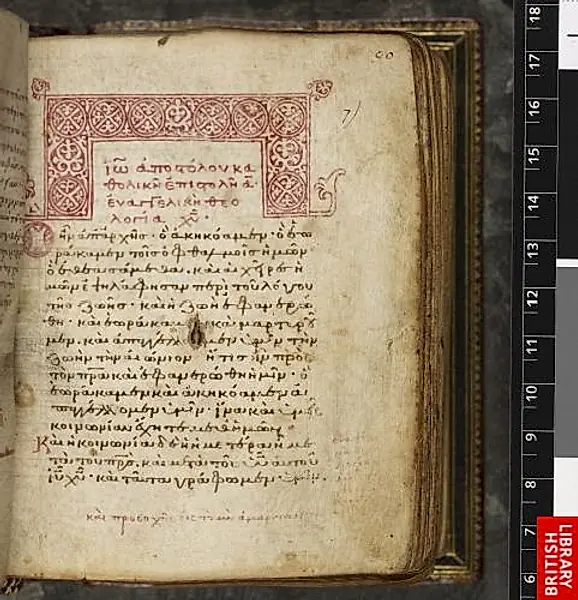 ἰῶ ἀποστόλου κα
θολικὴ ἐπιστολὴ α·
εὐαγγελικὴ θεο
λογία χυ·
ἦν ἀπαρχῆς· ὃ ἀκηκόαμεν· ὃ ἑω
ράκαμεν τοῖς ὀφθαλμοῖς ἡμῶν
ὃ ἐθεασάμεθα. καὶ αἱ χεῖρες ἡ
μῶν ἐψηλάφησαν περὶ τοῦ λόγου
τῆς ζωῆς· καὶ ἡ ζωὴ ἐφανερώ
θη· καὶ ἑωράκαμεν καὶ μαρτυροῦ
μεν. καὶ ἀπαγγέλλομεν ὑμῖν τὴν
ζωὴν τὴν αἰώνιον ἥτις ἦν πρὸς
τὸν πρα καὶ ἐφανερώθη ἡμῖν· ὃ
ἑωράκαμεν καὶ ἀκηκόαμεν ἀ
παγγέλλομεν ὑμῖν· ἵνα καὶ ὑμεῖς
κοινωνίαν ἔχητε μεθ ἡμῶν
Καὶ ἡ κοινωνία δὲ ἡ ἡμετέρα ἡ με
τὰ τοῦ πρς. καὶ μετὰ τοῦ υυ αὐτοῦ
ιυ χυ· καὶ ταῦτα γράφομεν ὑμῖν.
18
17
16
15
14
13
12
11
10
9
8
7
6
BRITISH
LIBRARY